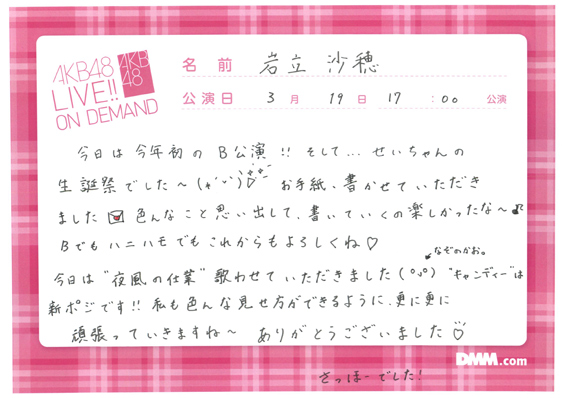 AKB48
LIVE!!
ON DEMAND
AKB
48
名前 岩立 沙穂
公演日 3月 19日 17:00 公演
今日は今年初のB公演!! そして… せいちゃんの
生誕祭でした〜 お手紙、書かせていただき
ました 色んなこと思い出して、書いていくの楽しかったな〜♪
Bでもハニハモでもこれからもよろしくね♡
なぞのかお。
今日は“夜風の仕業”歌わせていただきました(°◡°) “キャンディー”は
新ポジです!! 私も色んな見せ方ができるように、更に更に
頑張っていきますね〜 ありがとうございました♡
DMM.com
さっほーでした!